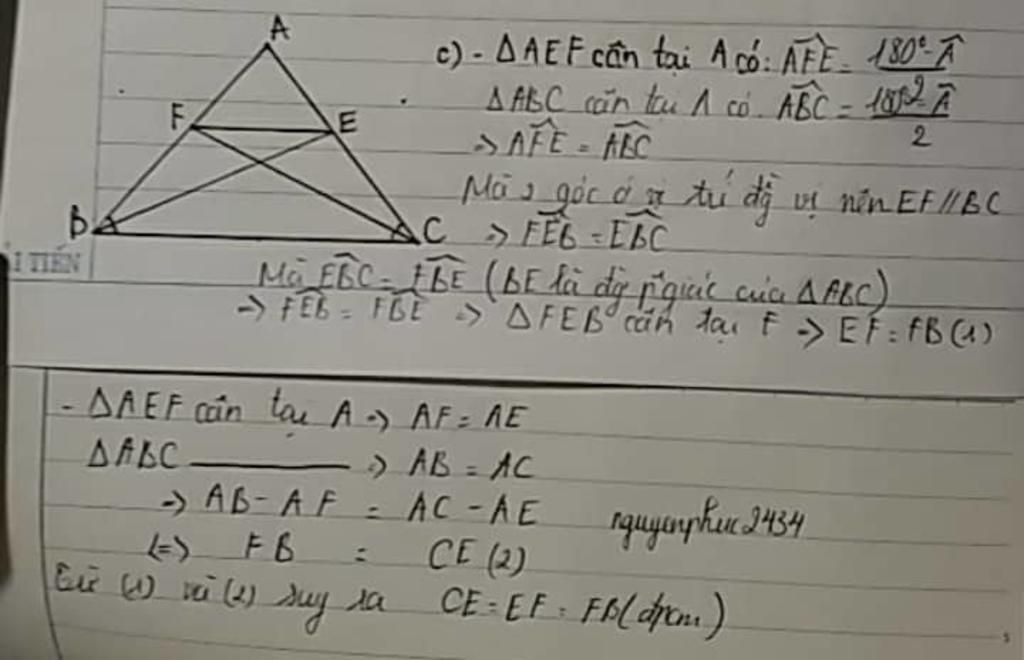 A
F
E
B
C
c) - ΔAEF cân tại A có: \widehat{AFE} = \frac{180° - \widehat{A}}{2}
ΔABC cân tại A có \widehat{ABC} = \frac{180° - \widehat{A}}{2}
=> \widehat{AFE} = \widehat{ABC}
Mà 2 góc ở vị trí đg vị nên EF // BC
=> \widehat{FEB} = \widehat{EBC}
I TIẾN
Mà \widehat{EBC} = \widehat{FBE} (BE là đg p.giác của ΔABC)
=> \widehat{FEB} = \widehat{FBE} => ΔFEB cân tại F => EF = FB (1)
- ΔAEF cân tại A => AF = AE
ΔABC ——— => AB = AC
=> AB - AF = AC - AE
nguyenphuc2434
(=> FB = CE (2)
Từ (1) và (2) suy ra CE = EF = FB (đpcm)